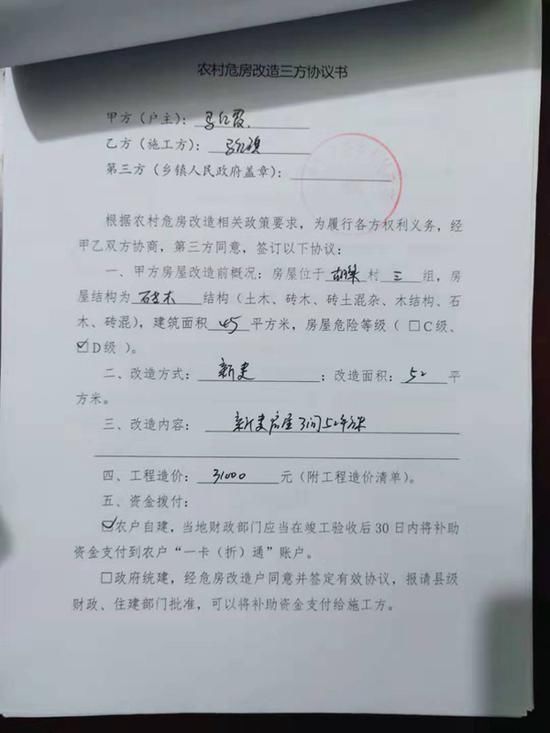 农村危房改造三方协议书
甲方（户主）：马红霞
乙方（施工方）：
第三方（乡镇人民政府盖章）：
根据农村危房改造相关政策要求，为履行各方权利义务，经
甲乙双方协商，第三方同意，签订以下协议：
一、甲方房屋改造前概况：房屋位于 村 三 组，房
屋结构为 砖木 结构（土木、砖木、砖土混杂、木结构、石
木、砖混），建筑面积 45 平方米，房屋危险等级（ □C级、
☑D级 ）。
二、改造方式： 新建 ；改造面积： 52 平
方米。
三、改造内容： 新建房屋3间52平方米
四、工程造价： 31000 元（附工程造价清单）。
五、资金拨付：
☑农户自建，当地财政部门应当在竣工验收后30日内将补助
资金支付到农户“一卡（折）通”账户。
□政府统建，经危房改造户同意并签定有效协议，报请县级
财政、住建部门批准，可以将补助资金支付给施工方。